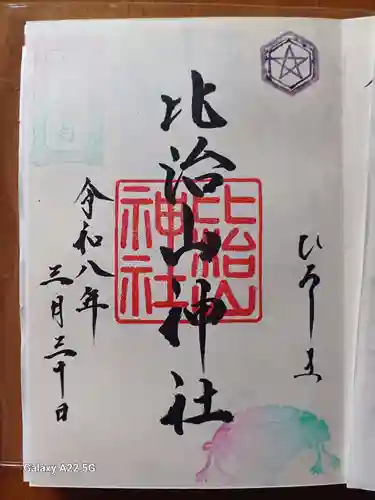 ひろしま
比治山神社
比治山
神社
令和八年
三月三十日
Galaxy A22 5G